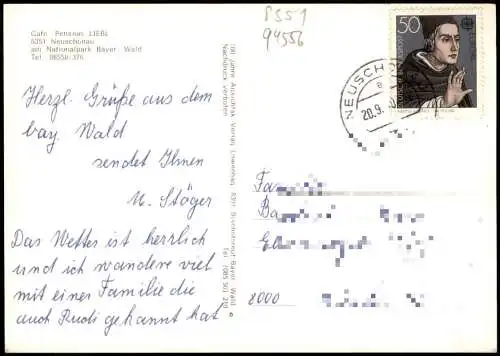 Cafe Pension LIEBL
8351 Neuschönau
am Nationalpark Bayer. Wald
Tel. 08558/376
8351
94556
Herzl. Grüße aus dem
bay. Wald
sendet Ihnen
M. Stöger
Das Wetter ist herrlich
und ich wandere viel
mit einer Familie die
auch Rudi gekannt hat
Nachdruck verboten
Verlag
Bayer. Wald
50
NEUSCH
20.9.
8000